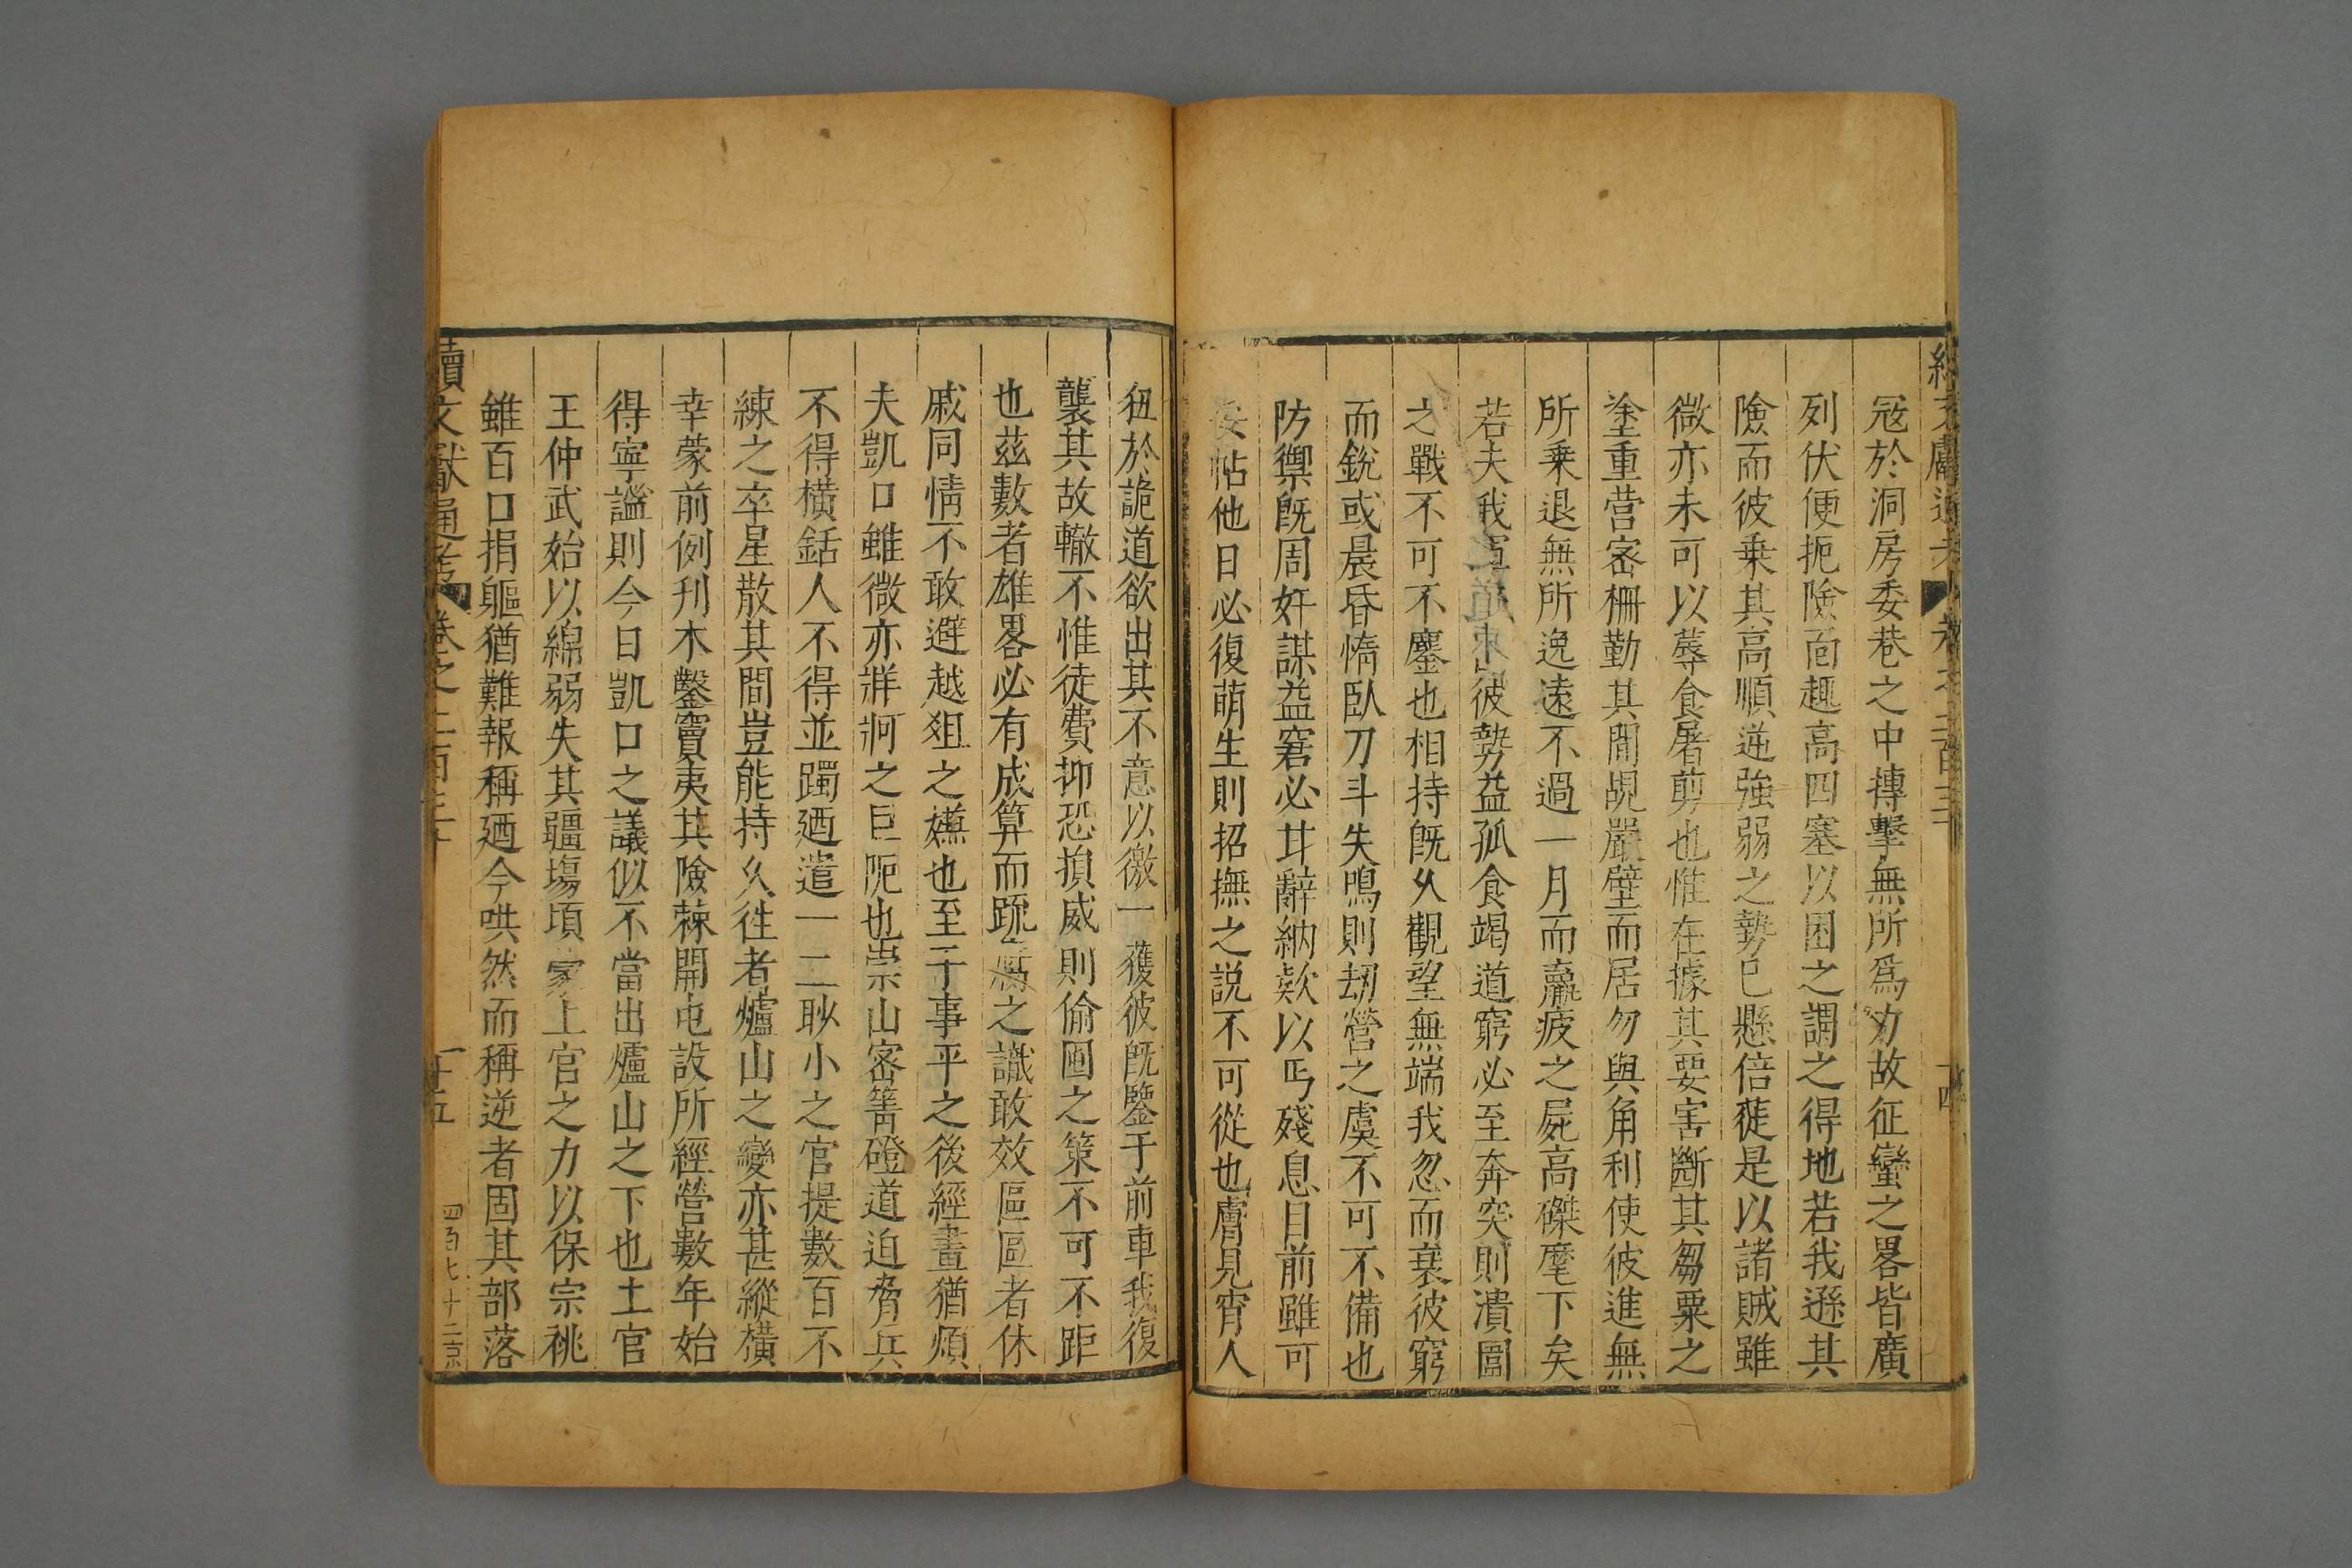 冦於洞房委巷之中摶擊無所爲力故征蠻之畧皆廣
列伏便扼險面趣高四塞以困之調之得地若我遜其
險而彼乗其高順逆強弱之勢已懸倍蓰是以諸賊雖
微亦未可以蓐食屠剪也惟在據其要害斷其芻粟之
塗重营宻柵勤其間覘嚴壁而居勿與角利使彼進無
所乗退無所逸遠不過一月而羸疲之屍高磔麾下矣
若夫我軍彼勢益孤食竭道窮必至奔突則潰圍
之戰不可不鏖也相持既久觀望無端我忽而衰彼窮
而銳或晨昏惰臥刀斗失鳴則刼營之虞不可不備也
防禦既周奸謀益窘必甘辭納欵以丐殘息目前雖可
安帖他日必復萌生則招撫之説不可從也膚見宵人
狃於詭道欲出其不意以徼一獲彼既鑒于前車我復
襲其故轍不惟徒費抑恐損威則偷圍之策不可不距
也茲數者雄畧必有成算而䟽之識敢效區區者休
戚同情不敢避越爼之嫌也至于事平之後經畫猶煩
夫凱口雖微亦牂牁之巨阨也崇山宻箐磴道迫脅兵
不得橫銛人不得並躅廼遣一二眇小之官提數百不
練之卒星散其間豈能持久徃者爐山之變亦甚縱橫
幸蒙前例刋木鑿竇夷其險棘開屯設所經營數年始
得寧謐則今日凱口之議似不當出爐山之下也土官
王仲武始以綿弱失其疆塲頃家上官之力以保宗祧
雖百口捐軀猶難報稱廼今哄然而稱逆者固其部落
續文獻通考 卷之二百三十 十五 四百七十二